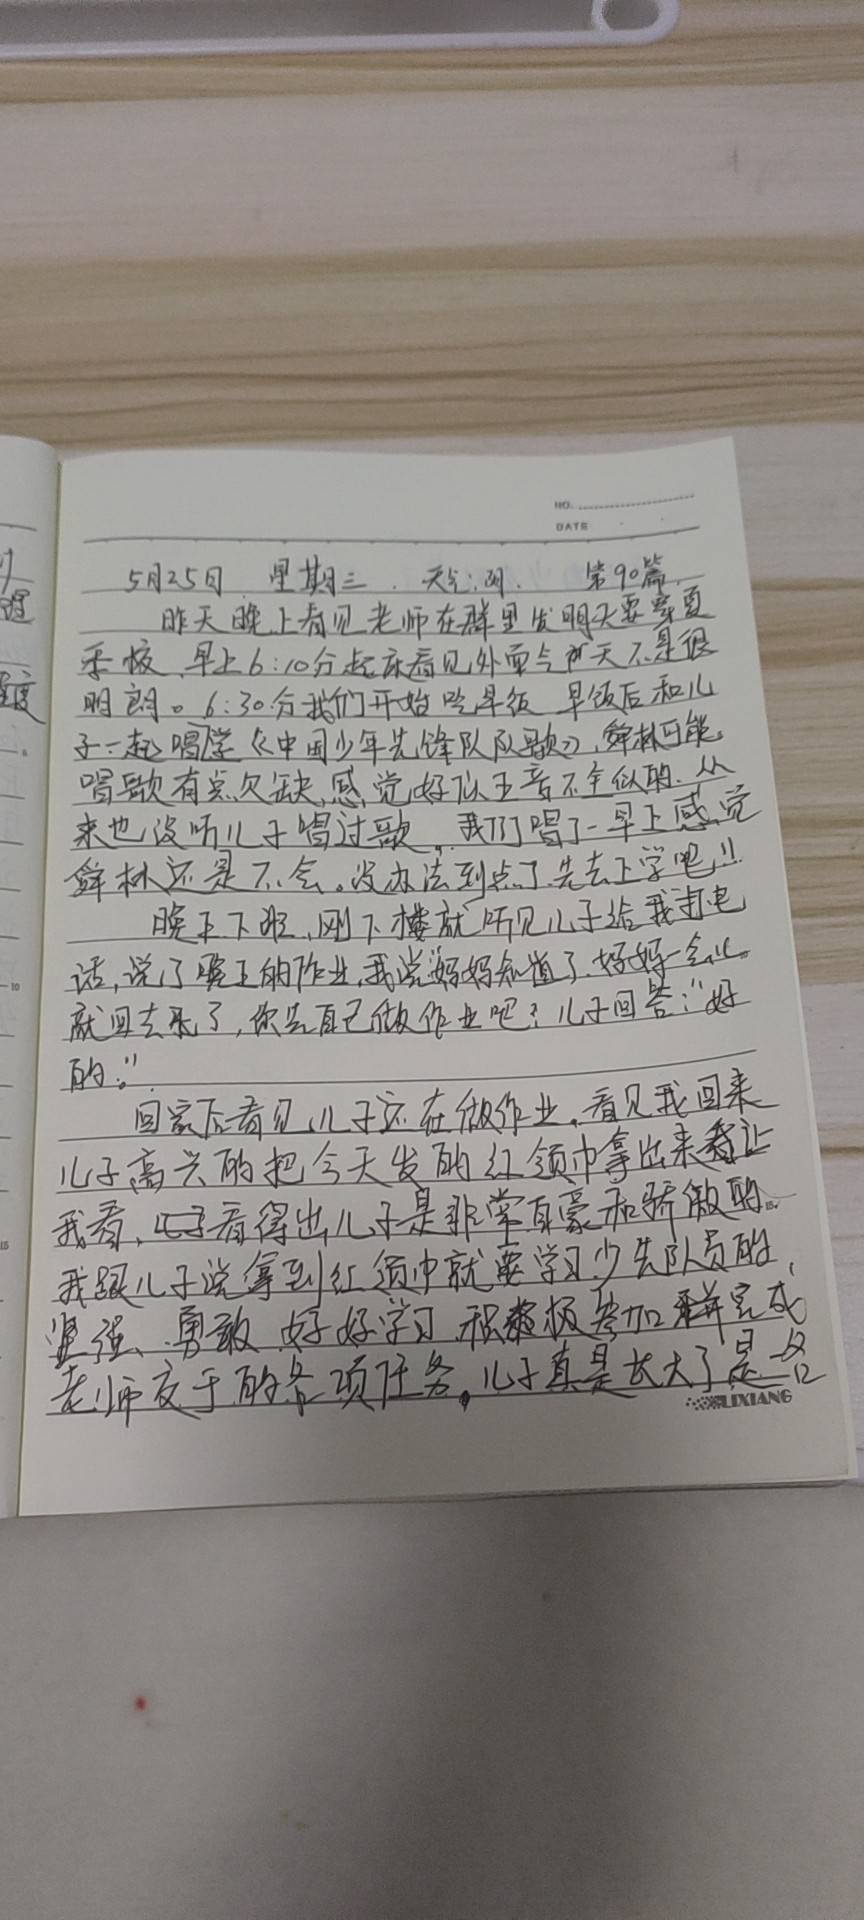 NO.
DATE
5月25日 星期三 . 天气:阴. 第90篇.
昨天晚上看见老师在群里发明天要穿夏
季校、早上6:10分起床看见外面气 天不是很
明朗。6:30分我们开始吃早饭 早饭后和儿
子一起唱学《中国少年先锋队队歌》,鲜林可能
唱歌有点欠缺,感觉好似五音不全似的.从
来也没听儿子唱过歌,我们唱了一早上感觉
鲜林还是不会。没办法到点了先去上学吧!!
晚上下班,刚下楼就听见儿子给我打电
话,说了晚上的作业,我说妈妈知道了.妈妈一会儿
就回去了,你先自己做作业吧?儿子回答:"好
的。"
回家后看见儿子还在做作业,看见我回来
儿子高兴的把今天发的红领巾拿出来让
我看,看得出儿子是非常自豪和骄傲的.
我跟儿子说拿到红领巾就要学习少先队员的、
坚强、勇敢 好好学习 积极参加 完成
老师交于的各项任务,儿子真是长大了是一
LIXIANG
10
15